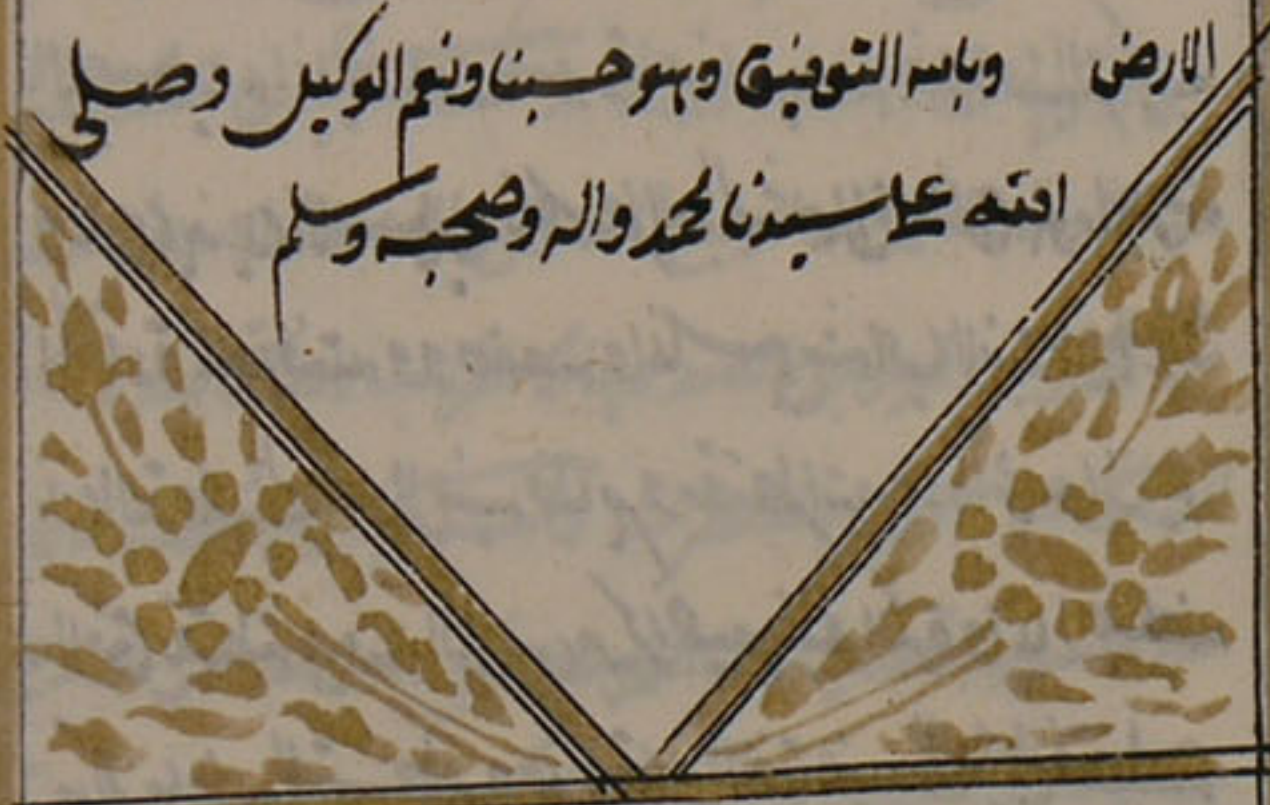 الارض وبالله التوفيق وهو حسبنا ونعم الوكيل وصلى
الله على سيدنا محمد واله وصحبه وسلم